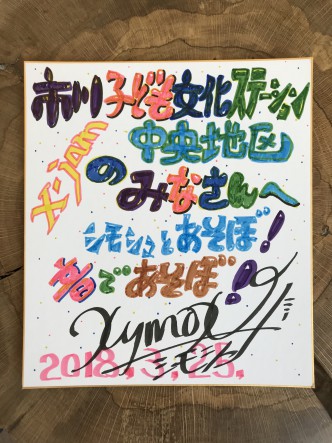 市川子ども文化ステーション
中央地区
X-jam
のみなさんへ
シモシュとあそぼ!
音であそぼ!!
Xymox
2018.3.25.